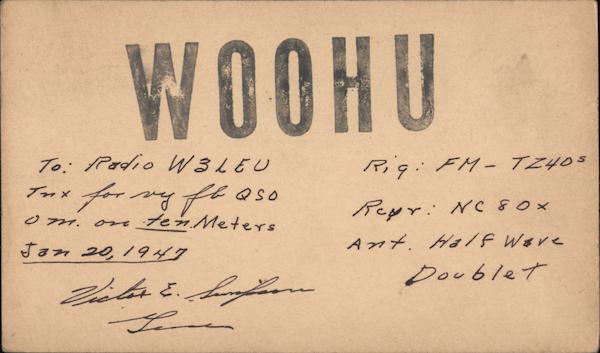 WOOHU
To: Radio W3LEU
Tnx for vy fb QSO
O m. on ten Meters
Jan 20, 1947
Victor E. Simpson
Rig: FM - TZ40s
Rcvr: NC80x
Ant. Half Wave
Doublet